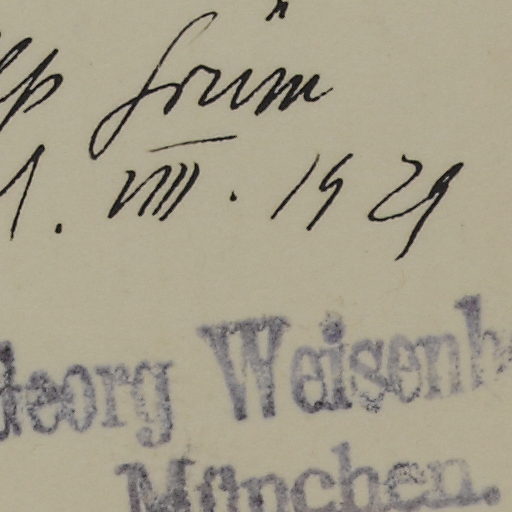 Grüm
1. VIII. 1929
Georg Weisenb
München.